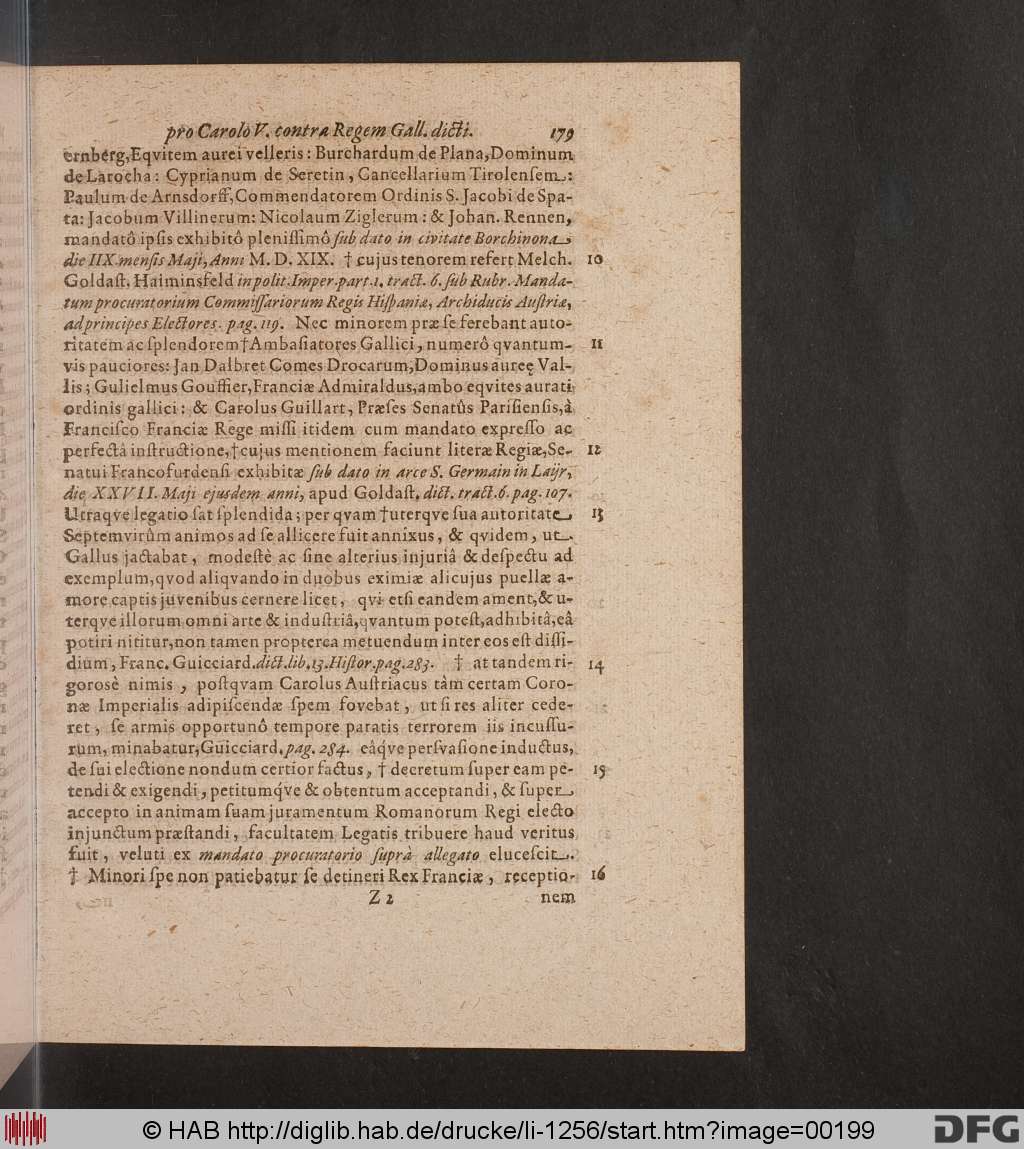 pro Carolo V. contra Regem Gall. dicti. 179
ernberg, Eqvitem aurei velleris: Burchardum de Plana, Dominum
de Larocha: Cyprianum de Seretin, Cancellarium Tirolenſem:
Paulum de Arnsdorff, Commendatorem Ordinis S. Jacobi de Spa-
ta: Jacobum Villinerum: Nicolaum Ziglerum: & Johan. Rennen,
mandatô ipſis exhibitô pleniſſimô ſub dato in civitate Borchinona,
die IIX. menſis Maji, Anni M. D. XIX. † cujus tenorem refert Melch. 10
Goldaſt. Haiminsfeld in polit. Imper. part. 1. tract. 6. ſub Rubr. Manda-
tum procuratorium Commiſſariorum Regis Hiſpaniæ, Archiducis Auſtriæ,
ad principes Electores. pag. 119. Nec minorem præ ſe ferebant auto-
ritatem ac ſplendorem † Ambaſiatores Gallici, numerô qvantum- 11
vis pauciores: Jan Dalbret Comes Drocarum, Dominus aureę Val-
lis; Gulielmus Gouffier, Franciæ Admiraldus, ambo eqvites aurati
ordinis gallici: & Carolus Guillart, Præſes Senatûs Pariſienſis, à
Franciſco Franciæ Rege miſſi itidem cum mandato expreſſo ac
perfectâ inſtructione, † cujus mentionem faciunt literæ Regiæ, Se- 12
natui Francofurdenſi exhibitæ ſub dato in arce S. Germain in Laijr,
die XXVII. Maji ejusdem anni, apud Goldaſt. dict. tract. 6. pag. 107.
Utraqve legatio ſat ſplendida; per qvam † uterqve ſua autoritate 13
Septemvirûm animos ad ſe allicere fuit annixus, & qvidem, ut
Gallus jactabat, modeſtè ac ſine alterius injuriâ & deſpectu ad
exemplum, qvod aliqvando in duobus eximiæ alicujus puellæ a-
more captis juvenibus cernere licet, qvi etſi eandem ament, & u-
terqve illorum omni arte & induſtriâ, qvantum poteſt, adhibitâ, eâ
potiri nititur, non tamen propterea metuendum inter eos eſt diſſi-
dium, Franc. Guicciard. dict. lib. 13. Hiſtor. pag. 283. † at tandem ri- 14
gorosè nimis, poſtqvam Carolus Auſtriacus tàm certam Coro-
næ Imperialis adipiſcendæ ſpem fovebat, ut ſi res aliter cede-
ret, ſe armis opportunô tempore paratis terrorem iis incuſſu-
rum, minabatur, Guicciard. pag. 284. eâq́ve perſvaſione inductus,
de ſui electione nondum certior factus, † decretum ſuper eam pe- 15
tendi & exigendi, petitumq́ve & obtentum acceptandi, & ſuper
accepto in animam ſuam juramentum Romanorum Regi electo
injunctum præſtandi, facultatem Legatis tribuere haud veritus
fuit, veluti ex mandato procuratorio ſuprà allegato eluceſcit.
† Minori ſpe non patiebatur ſe detineri Rex Franciæ, receptio- 16
Z 2 nem
© HAB http://diglib.hab.de/drucke/li-1256/start.htm?image=00199
DFG